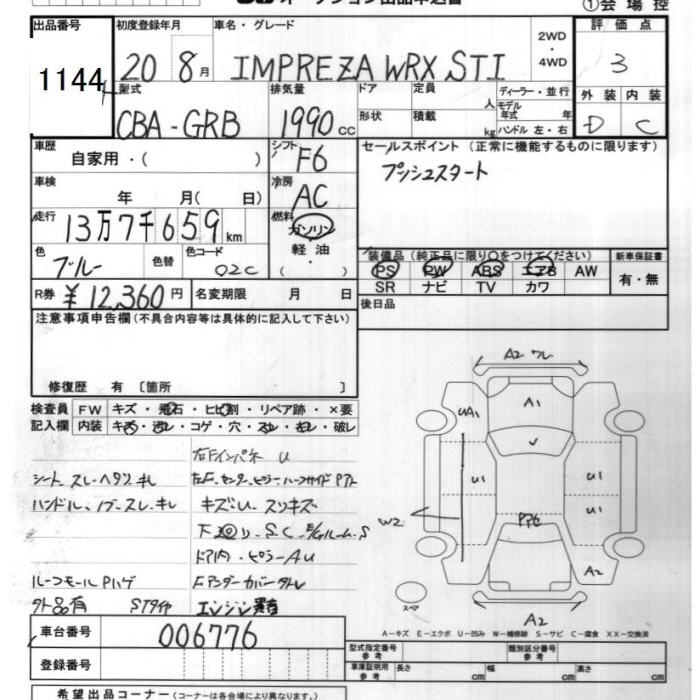 オークション出品申込書
①会場控
出品番号 初度登録年月 車名・グレード 評価点
1144 20 8月 IMPREZA WRX STI 2WD・4WD 3
型式 排気量 ドア 定員 人 ディーラー・並行 外装 内装
CBA-GRB 1990cc 形状 積載 kg モデル年式 年 ハンドル 左・右 D C
車歴 シフト セールスポイント (正常に機能するものに限ります)
自家用・( ) F6 プッシュスタート
車検 冷房
年 月( 日) AC
走行 燃料
13万7千659km ガソリン
色 色替 色コード 軽油
ブルー 02C ・( )
装備品(純正品に限り○をつけてください) 新車保証書
PS PW ABS エアB AW 有・無
SR ナビ TV カワ
R券 ¥12,360円 名変期限 月 日
後日品
注意事項申告欄(不具合内容等は具体的に記入して下さい)
修復歴 有 〔箇所 〕
検査員 FW キズ・飛石・ヒビ割・リペア跡・×要
記入欄 内装 キズ・汚レ・コゲ・穴・スレ・キレ・破レ
左Fインパネ U
シート スレ・ヘタリ・キレ
ハンドル、ノブ・スレ・キレ キズ・U・スリキズ
下廻り・S.C.E/Gルーム.S
ドア内・ピラーAU
ルーフモールPハゲ Fアンダーカバークレ
外品有 STタイヤ エンジン異音
A2 ワレ
UA1 A1
U
U1 U1
U1
W2 PアセA2
スペア
A2
A-キズ E-エクボ U-凹み W-補修跡 S-サビ C-腐食 XX-交換済
車台番号 006776
登録番号
型式指定番号 参考 類別区分番号 参考
車庫証明用 参考 長さ cm 幅 cm 高さ cm
希望出品コーナー(コーナーは各会場により異なります。)